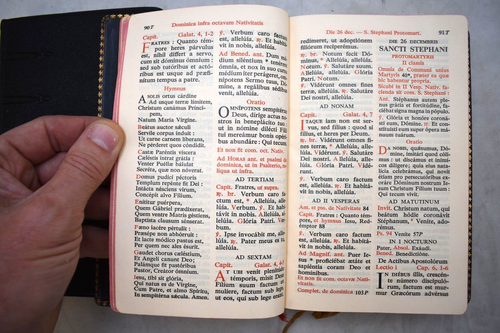 90T Dominica infra octavam Nativitatis
Capit. Galat. 4, 1-2
FRATRES: Quanto tem-
pore heres párvulus
est, nihil differt a servo,
cum sit dóminus ómnium: *
sed sub tutóribus et actó-
ribus est usque ad præfi-
nítum tempus a patre.
Hymnus
A SOLIS ortus cárdine
Ad usque terræ límitem,
Christum canámus Prínci-
pem,
Natum María Vírgine.
Beátus auctor sǽculi
Servíle corpus índuit:
Ut carne carnem líberans,
Ne pérderet quos cóndidit.
Castæ paréntis víscera
Cæléstis intrat grátia:
Venter Puéllæ báiulat
Secréta, quæ non nóverat.
Domus pudíci péctoris
Templum repénte fit Dei:
Intácta nésciens virum,
Concépit alvo Fílium.
Enítitur puérpera,
Quem Gábriel prædíxerat,
Quem ventre Matris géstiens,
Baptísta clausum sénserat.
Fæno iacére pértulit:
Præsépe non abhórruit:
Et lacte módico pastus est,
Per quem nec ales ésurit.
Gaudet chorus cæléstium,
Et Angeli canunt Deo;
Palámque fit pastóribus
Pastor, Creátor ómnium.
Iesu, tibi sit glória,
Qui natus es de Vírgine,
Cum Patre, et almo Spíritu,
In sempitérna sǽcula. Amen.
℣. Verbum caro factum
est, allelúia. ℟. Et habitávit
in nobis, allelúia.
Ad Bened. ant. Dum mé-
dium siléntium * tenérent
ómnia, et nox in suo cursu
médium iter perágeret, om-
nípotens Sermo tuus, Dó-
mine, a regálibus sédibus
venit, allelúia.
Oratio
OMNÍPOTENS sempitérne
Deus, dírige actus no-
stros in beneplácito tuo: ut
in nómine dilécti Fílii tui
mereámur bonis opéribus
abundáre: Qui tecum.
Et non fit com. oct. Nativ.
Ad Horas ant. et psalmi de
dominica, ut in Psalterio, re-
liqua ut infra.
AD TERTIAM
Capit. Fratres, ut supra.
℟. br. Verbum caro fa-
ctum est, * Allelúia, alle-
lúia. Verbum. ℣. Et habi-
távit in nobis. Allelúia, alle-
lúia. Glória Patri. Ver-
bum.
℣. Ipse invocábit me, alle-
lúia. ℟. Pater meus es tu,
allelúia.
AD SEXTAM
Capit. Galat. 4, 4-5
AT ubi venit plenitúdo
témporis, misit Deus
Fílium suum factum ex
mulíere, factum sub lege, *
ut eos, qui sub lege erant,
Die 26 dec. — S. Stephani Protomart. 91T
redímeret, ut adoptiónem
filiórum recipéremus.
℟. br. Notum fecit Dómi-
nus, * Allelúia, allelúia.
Notum. ℣. Salutáre suum.
Allelúia, allelúia. Glória
Patri. Notum.
℣. Vidérunt omnes fines
terræ, allelúia. ℟. Salutáre
Dei nostri, allelúia.
AD NONAM
Capit. Galat. 4, 7
ITAQUE iam non est ser-
vus, sed fílius: * quod si
fílius, et heres per Deum.
℟. br. Vidérunt omnes fi-
nes terræ, * Allelúia, alle-
lúia. Vidérunt. ℣. Salutáre
Dei nostri. Allelúia, alle-
lúia. Glória Patri. Vidé-
runt.
℣. Verbum caro factum
est, allelúia. ℟. Et habitávit
in nobis, allelúia.
AD II VESPERAS
Ant. et pss. de Nativitate 84
Capit. Fratres: Quanto tém-
pore, et hymnus, ut Rodé-
mptor 88
℣. Verbum caro factum
est, allelúia. ℟. Et habitávit
in nobis, allelúia.
Ad Magnif. ant. Puer Ie-
sus * proficiébat ætáte et sa-
piéntia coram Deo et ho-
mínibus.
Et non fit com. octavæ Nati-
vitatis.
Complet. de dominica 103P
DIE 26 DECEMBRIS
SANCTI STEPHANI
PROTOMARTYRIS
II classis
Omnia de Communi unius
Martyris 40*, præter ea quæ
hic habentur propria.
Ad Bened. ant. Stéphanus autem ple-
nus grátia et fortitúdine, fa-
ciébat signa magna in pópulo.
℣. Glória et honóre coro-
násti eum, Dómine. ℟. Et con-
stituísti eum super ópera má-
nuum tuárum.
Oratio
DA nobis, quǽsumus, Dó-
mine, imitári quod cóli-
mus: ut discámus et ini-
mícos dilígere; quia eius nata-
lícia celebrámus, qui novit
étiam pro persecutóribus ex-
oráre Dóminum nostrum Iesum
Christum Fílium tuum: Qui
tecum vivit.
AD MATUTINUM
Invit. Christum natum, qui
beátum hódie coronávit
Stéphanum, * Veníte, ado-
rémus.
Ps. 94 Veníte 57P*
IN I NOCTURNO
℣. Pater. Absol. Exáudi.
Bened. Benedictióne.
De Actibus Apostolorum
Lectio i Cap. 6, 1-6
IN diébus illis, crescén-
te número discipuló-
rum, factum est murmur
Græcórum advérsus